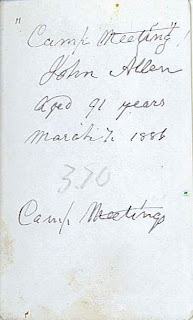 "Camp Meeting"
John Allen
aged 91 years
March 7, 1886
370
Camp Meeting